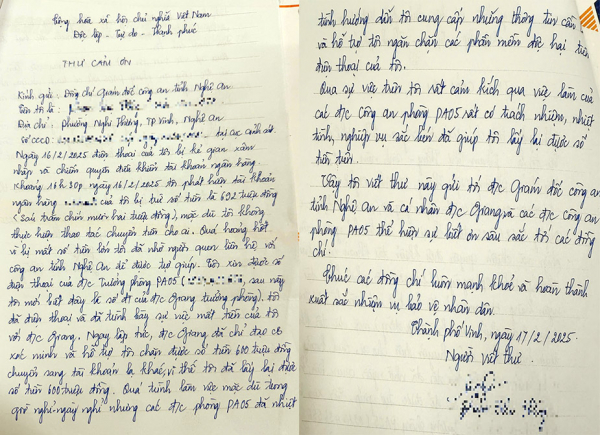 Cộng hòa xã hội chủ nghĩa Việt Nam
Độc lập - Tự do - Hạnh phúc
THƯ CẢM ƠN
Kính gửi: Đồng chí Giám đốc công an tỉnh Nghệ An
Tên tôi là:
Địa chỉ: Phường Nghi Thủy, TP Vinh, Nghệ An
Số CCCD: tại cục cảnh sát
Ngày 16/2/2025 điện thoại của tôi bị kẻ gian xâm
nhập và chiếm quyền điều khiển tài khoản ngân hàng
khoảng 16h30p ngày 16/2/2025 tôi phát hiện tài khoản
ngân hàng của tôi bị trừ số tiền là 692 triệu đồng
(Sáu trăm chín mươi hai triệu đồng), mặc dù tôi không
thực hiện thao tác chuyển tiền cho ai. Quá hoảng hốt
vì bị mất số tiền lớn tôi đã nhờ người quen liên hệ với
công an tỉnh Nghệ An để được trợ giúp. Tôi xin được số
điện thoại của đ/c Trưởng phòng PA05 ( sau này
tôi mới biết đây là số đt của đ/c Giang trưởng phòng). Tôi
đã điện thoại và đã trình bày sự việc mất tiền của tôi
với đ/c Giang. Ngay lập tức, đ/c Giang đã chỉ đạo cb
xác minh và hỗ trợ tôi chặn được số tiền 600 triệu đồng
chuyển sang tài khoản lạ khác, vì thế tôi đã lấy lại được
số tiền 600 triệu đồng. Quá trình làm việc mặc dù trong
giờ nghỉ-ngày nghỉ nhưng các đ/c phòng PA05 đã nhiệt
tình hướng dẫn tôi cung cấp những thông tin cần
và hỗ trợ tôi ngăn chặn các phần mềm độc hại trên
điện thoại của tôi.
Qua sự việc trên tôi rất cảm kích qua việc làm của
các đ/c Công an phòng PA05 rất có trách nhiệm, nhiệt
tình, nghiệp vụ sắc bén đã giúp tôi lấy lại được số
tiền trên.
Vậy tôi viết thư này gửi tới đ/c Giám đốc công an
tỉnh Nghệ An và cá nhân đ/c Giang và các đ/c công an
phòng PA05 thể hiện sự biết ơn sâu sắc tới các đồng
chí.
Chúc các đồng chí luôn mạnh khỏe và hoàn thành
xuất sắc nhiệm vụ bảo vệ nhân dân.
Thành phố Vinh, ngày 17/2/2025.
Người viết thư